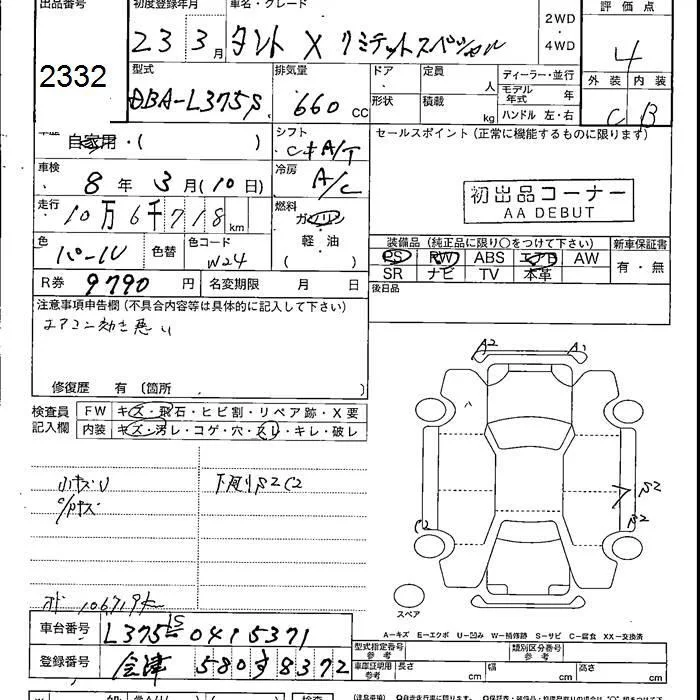 出品番号 初度登録年月 車名・グレード 評価点
2332 23 3月 タント X リミテットスペシャル 2WD・4WD 4
型式 排気量 ドア 定員 人 ディーラー・並行 外装 内装
DBA-L375S 660cc 形状 積載 kg モデル年式 年 C B
ハンドル 左・右
自家用・( ) シフト C#A/T セールスポイント(正常に機能するものに限ります)
車検 8年 3月(10日) 冷房 A/C
初出品コーナー
AA DEBUT
走行 10万6千718km 燃料 ガソリン
軽・油
( )
色 パール 色替 色コード W24
装備品(純正品に限り○をつけて下さい) 新車保証書
PS PW ABS エアB AW 有・無
SR ナビ TV 本革
R券 9790円 名変期限 月 日 後日品
注意事項申告欄(不具合内容等は具体的に記入して下さい)
エアコン効き悪い
修復歴 有(箇所
A2 A1
検査員記入欄 FW キズ・飛石・ヒビ割・リペア跡・X要
内装 キズ・汚レ・コゲ・穴・スレ・キレ・破レ
小キズU 下廻りS2C2
C/Pキズ
B2
B2
C2
106719km
スペア
A-キズ E-エクボ U-凹み W-補修跡 S-サビ C-腐食 XX-交換済
車台番号 L375S-0415371
型式指定番号 参考 類別区分番号 参考
登録番号 会津 580す8372
車庫証明用参考 長さ cm 幅 cm 高さ cm